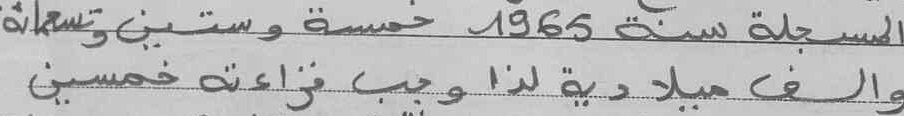 المسجلة سنة 1965 خمسة وستين وتسعمائة
والف ميلادية لذا وجب قراءته خمسين